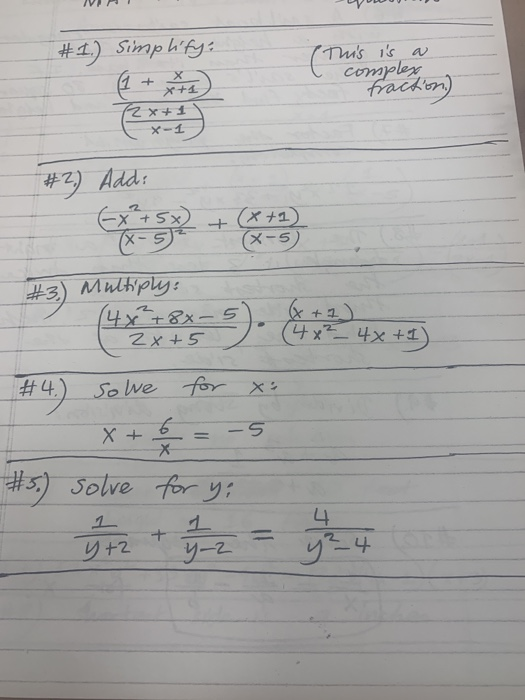 #1.) Simplify: (This is a complex fraction.)
(1 + x/(x+1)) / ((2x+1)/(x-1))
#2.) Add:
(-x²+5x)/(x-5)² + (x+1)/(x-5)
#3.) Multiply:
((4x²+8x-5)/(2x+5)) · (x+1)/(4x²-4x+1)
#4.) Solve for x:
x + 6/x = -5
#5.) Solve for y:
1/(y+2) + 1/(y-2) = 4/(y²-4)